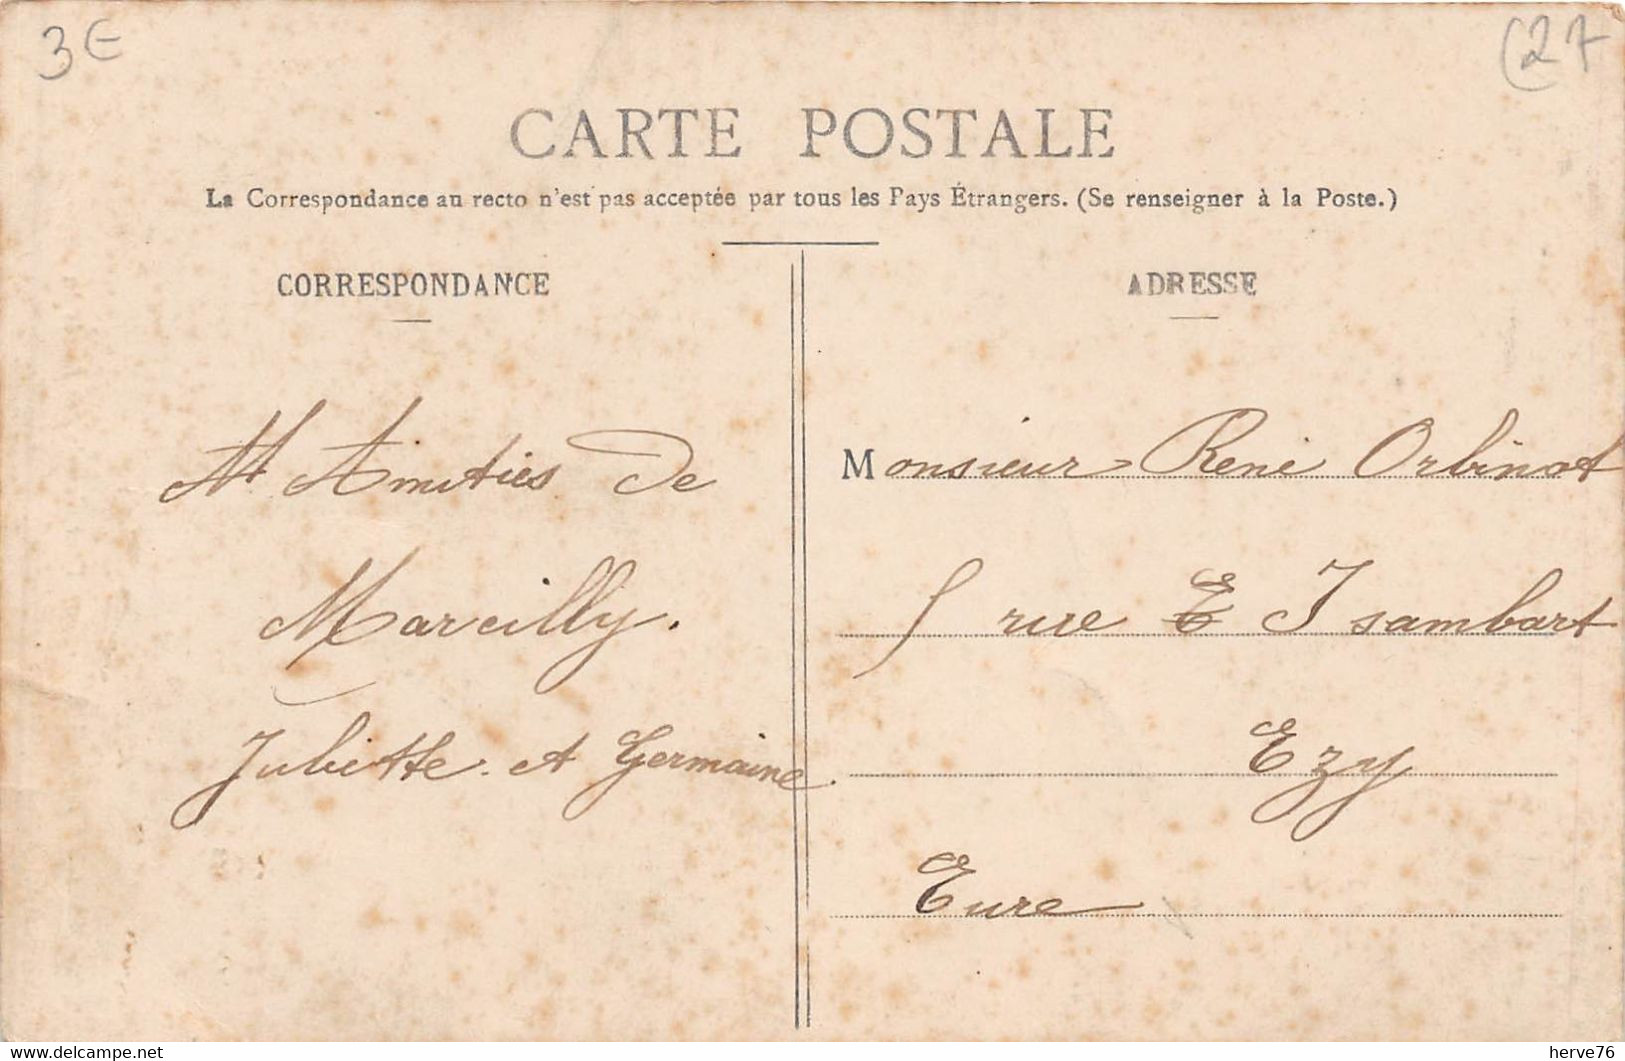 3€
(27
CARTE POSTALE
La Correspondance au recto n'est pas acceptée par tous les Pays Étrangers. (Se renseigner à la Poste.)
CORRESPONDANCE
Amitiés de
Marcilly.
Juliette et Germaine.
ADRESSE
Monsieur René Orbinot
rue E Isambart
Ezy
Eure
www.delcampe.net
herve76